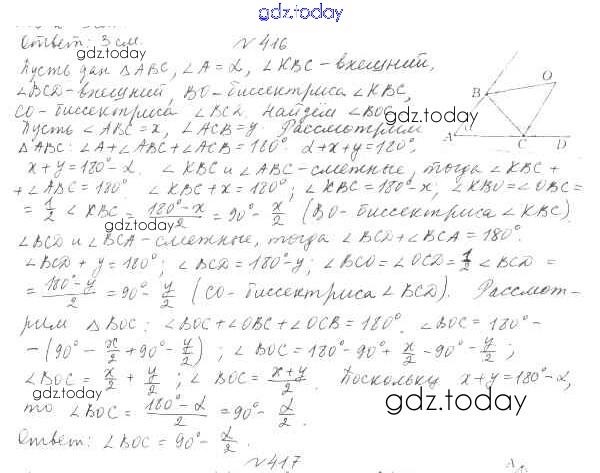 gdz.today
Ответ: 3 см.
gdz.today
№416
Пусть дан △ABC, ∠A = α, ∠KBC - внешний,
∠BCD - внешний, BO - биссектриса ∠KBC,
CO - биссектриса ∠BCD. Найдём ∠BOC.
gdz.today
Пусть ∠ABC = x, ∠ACB = y. Рассмотрим
△ABC: ∠A + ∠ABC + ∠ACB = 180° α + x + y = 180°,
x + y = 180° - α. ∠KBC и ∠ABC - смежные, тогда ∠KBC +
+ ∠ABC = 180° ∠KBC + x = 180°; ∠KBC = 180° - x; ∠KBO = ∠OBC =
= 1/2 ∠KBC = (180° - x)/2 = 90° - x/2 (BO - биссектриса ∠KBC).
gdz.today
∠BCD и ∠BCA - смежные, тогда ∠BCD + ∠BCA = 180°.
∠BCD + y = 180°; ∠BCD = 180° - y; ∠BCO = ∠OCD = 1/2 ∠BCD =
= (180° - y)/2 = 90° - y/2 (CO - биссектриса ∠BCD). Рассмот-
рим △BOC: ∠BOC + ∠OBC + ∠OCB = 180°. ∠BOC = 180° -
- (90° - x/2 + 90° - y/2); ∠BOC = 180° - 90° + x/2 - 90° - y/2;
∠BOC = x/2 + y/2; ∠BOC = (x + y)/2. Поскольку x + y = 180° - α,
gdz.today
то ∠BOC = (180° - α)/2 = 90° - α/2.
gdz.today
Ответ: ∠BOC = 90° - α/2.
№417
B
O
A
α
C
D
A